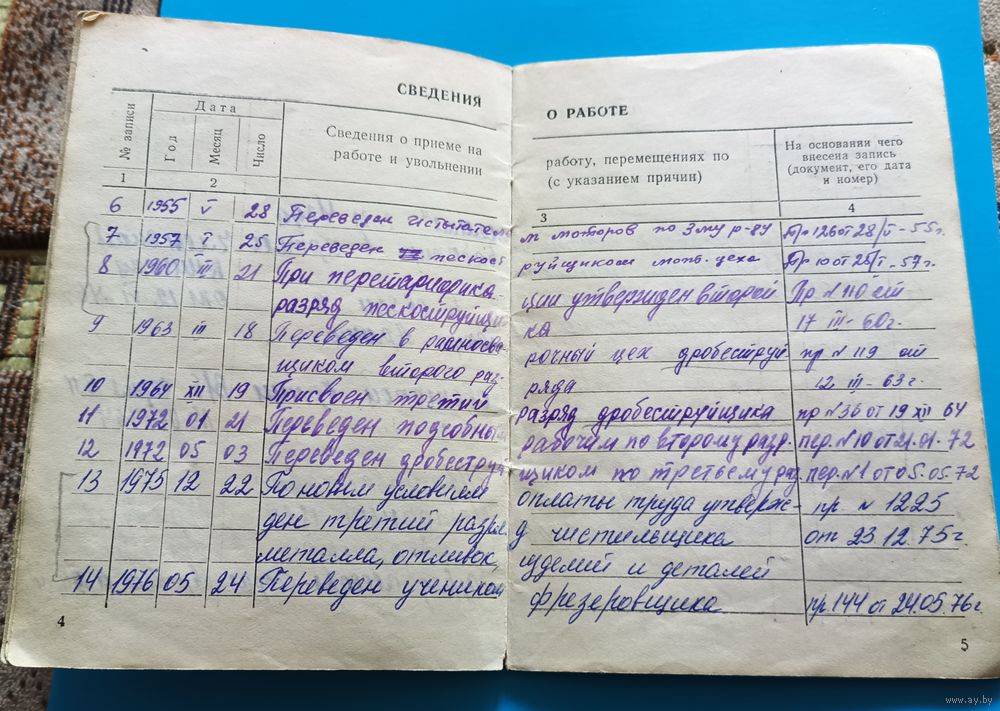 СВЕДЕНИЯ
№ записи
Дата
Год
Месяц
Число
Сведения о приеме на
работе и увольнении
1
2
6 1955 V 28 Переведен испытателе
7 1957 I 25 Переведен пескост
8 1960 III 21 При перетарифика-
разряд пескоструйщи
9 1963 III 18 Переведен в
щиком второго раз-
10 1964 XII 19 Присвоен третий
11 1972 01 21 Переведен подсобным
12 1972 05 03 Переведен дробеструй
13 1975 12 22 По новым условиям
ден третий разря
металла, отливок,
14 1976 05 24 Переведен учеником
4
О РАБОТЕ
работу, перемещениях по
(с указанием причин)
На основании чего
внесена запись
(документ, его дата
и номер)
3
4
м моторов по 3му р-ду Пр 126 от 28/V-55г.
руйщиком цеха Пр 10 от 25/I-57г.
ции утвержден второй Пр №110 от
ка 17 III-60г.
рочный цех дробеструй пр №119 от
ряда 12 III-63г.
разряд дробеструйщика пр №36 от 19 XII 64
рабочим по второму разр. пер. №10 от 21.01.72
щиком по третьему раз. пер. №1 от 05.05.72
оплаты труда утверж- пр. № 1225
д чистильщика от 23 12.75г.
изделий и деталей
фрезеровщика пр. 144 от 24.05.76г
5
www.ay.by